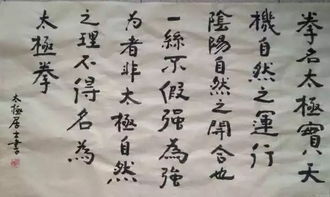 拳名太極實天
機自然之運行
陰陽自然之開合也
一絲不假强為強
為者非太極自然
之理不得名為
太極拳
太極居士書